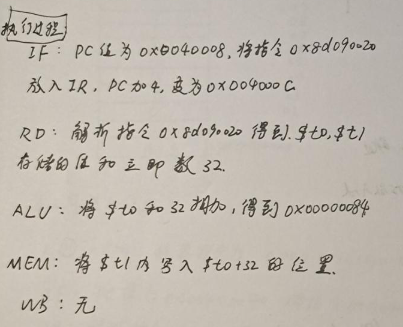 执行过程:
IF: PC值为0x0040008,将指令0x8d090020
放入IR,PC加4,变为0x004000C
RD: 解析指令0x8d090020得到.$t0,$t1
存储的值和立即数32.
ALU: 将$t0和32相加,得到0x00000084
MEM: 将$t1内写入$t0+32的位置.
WB: 无